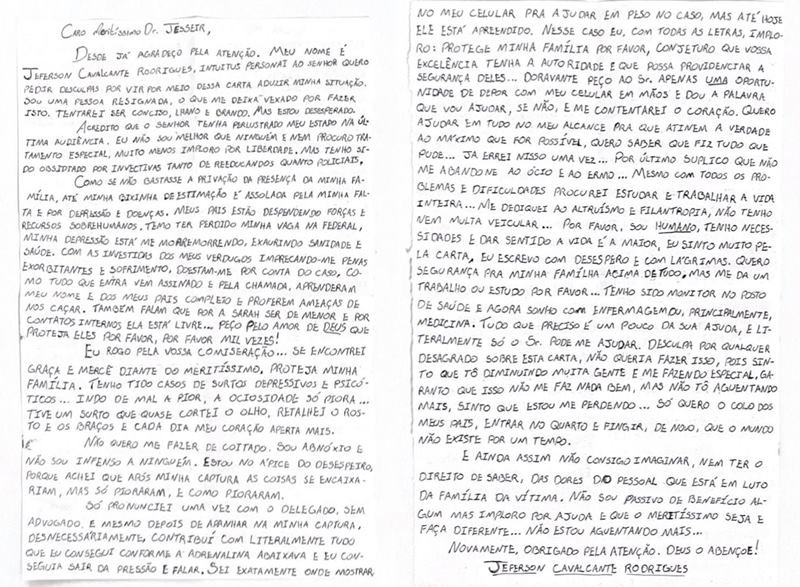 CARO MERITÍSSIMO DR. JESSEIR,
DESDE JÁ AGRADEÇO PELA ATENÇÃO. MEU NOME É
JEFERSON CAVALCANTE RODRIGUES, INTUITUS PERSONAI AO SENHOR QUERO
PEDIR DESCULPAS POR VIR POR MEIO DESSA CARTA ADUZIR MINHA SITUAÇÃO.
SOU UMA PESSOA RESIGNADA, O QUE ME DEIXA VEXADO POR FAZER
ISTO. TENTAREI SER CONCISO, LHANO E BRANDO. MAS ESTOU DESESPERADO.
ACREDITO QUE O SENHOR TENHA PERLUSTRADO MEU ESTADO NA ÚL-
TIMA AUDIÊNCIA. EU NÃO SOU MELHOR QUE NINGUÉM E NEM PROCURO TRA-
TAMENTO ESPECIAL, MUITO MENOS IMPLORO POR LIBERDADE. MAS TENHO SI-
DO OBSIDIADO POR INVECTIVAS TANTO DE REEDUCANDOS QUANTO POLICIAIS.
COMO SE NÃO BASTASSE A PRIVAÇÃO DA PRESENÇA DA MINHA FA-
MÍLIA, ATÉ MINHA BIXINHA DE ESTIMAÇÃO É ASSOLADA PELA MINHA FAL-
TA E POR DEPRESSÃO E DOENÇAS. MEUS PAIS ESTÃO DESPENDENDO FORÇAS E
RECURSOS SOBREHUMANOS. TEMO TER PERDIDO MINHA VAGA NA FEDERAL,
MINHA DEPRESSÃO ESTÁ ME MORREMORRENDO, EXAURINDO SANIDADE E
SAÚDE. COM AS INVESTIDAS DOS MEUS VERDUGOS IMPRECANDO-ME PENAS
EXORBITANTES E SOFRIMENTO, DOESTAM-ME POR CONTA DO CASO, CO-
MO TUDO QUE ENTRA VEM ASSINADO E PELA CHAMADA, APRENDERAM
MEU NOME E DOS MEUS PAIS COMPLETO E PROFEREM AMEAÇAS DE
NOS CAÇAR. TAMBÉM FALAM QUE POR A SARAH SER DE MENOR E POR
CONTATOS INTERNOS ELA ESTÁ LIVRE... PEÇO PELO AMOR DE DEUS QUE
PROTEJA ELES POR FAVOR, POR FAVOR MIL VEZES!
EU ROGO PELA VOSSA COMISERAÇÃO... SE ENCONTREI
GRAÇA E MERCÊ DIANTE DO MERITÍSSIMO, PROTEJA MINHA
FAMÍLIA. TENHO TIDO CASOS DE SURTOS DEPRESSIVOS E PSICÓ-
TICOS... INDO DE MAL A PIOR, A OCIOSIDADE SÓ PIORA...
TIVE UM SURTO QUE QUASE CORTEI O OLHO, RETALHEI O ROS-
TO E OS BRAÇOS E CADA DIA MEU CORAÇÃO APERTA MAIS.
NÃO QUERO ME FAZER DE COITADO. SOU ABNÓXIO E
NÃO SOU INFENSO A NINGUÉM. ESTOU NO ÁPICE DO DESESPERO,
PORQUE ACHEI QUE APÓS MINHA CAPTURA AS COISAS SE ENCAIXA-
RIAM, MAS SÓ PIORARAM, E COMO PIORARAM.
SÓ PRONUNCIEI UMA VEZ COM O DELEGADO, SEM
ADVOGADO. E MESMO DEPOIS DE APANHAR NA MINHA CAPTURA,
DESNECESSÁRIAMENTE, CONTRIBUÍ COM LITERALMENTE TUDO
QUE EU CONSEGUI CONFORME A ADRENALINA ABAIXAVA E EU CON-
SEGUIA SAIR DA PRESSÃO E FALAR. SEI EXATAMENTE ONDE MOSTRAR
NO MEU CELULAR PRA AJUDAR EM PESO NO CASO, MAS ATÉ HOJE
ELE ESTÁ APREENDIDO. NESSE CASO EU, COM TODAS AS LETRAS, IMPLO-
RO: PROTEGE MINHA FAMÍLIA POR FAVOR, CONJETURO QUE VOSSA
EXCELÊNCIA TENHA A AUTORIDADE E QUE POSSA PROVIDENCIAR A
SEGURANÇA DELES... DORAVANTE PEÇO AO SR. APENAS UMA OPORTU-
NIDADE DE DEPOR COM MEU CELULAR EM MÃOS E DOU A PALAVRA
QUE VOU AJUDAR, SE NÃO, E ME CONTENTAREI O CORAÇÃO. QUERO
AJUDAR EM TUDO NO MEU ALCANCE PRA QUE ATINEM A VERDADE
AO MÁXIMO QUE FOR POSSÍVEL, QUERO SABER QUE FIZ TUDO QUE
PUDE... JA ERREI NISSO UMA VEZ... POR ÚLTIMO SUPLICO QUE NÃO
ME ABANDONE AO ÓCIO E AO ERMO... MESMO COM TODOS OS PRO-
BLEMAS E DIFICULDADES PROCUREI ESTUDAR E TRABALHAR A VIDA
INTEIRA... ME DEDIQUEI AO ALTRUÍSMO E FILANTROPIA, NÃO TENHO
NEM MULTA VEICULAR... POR FAVOR, SOU HUMANO, TENHO NECES-
SIDADES E DAR SENTIDO A VIDA É A MAIOR, EU SINTO MUITO PE-
LA CARTA, EU ESCREVO COM DESESPERO E COM LÁGRIMAS. QUERO
SEGURANÇA PRA MINHA FAMÍLHA ACIMA DE TUDO, MAS ME DA UM
TRABALHO OU ESTUDO POR FAVOR... TENHO SIDO MONITOR NO POSTO
DE SAÚDE E AGORA SONHO COM ENFERMAGEM OU, PRINCIPALMENTE,
MEDICINA. TUDO QUE PRECISO É UM POUCO DA SUA AJUDA, E LI-
TERALMENTE SÓ O SR. PODE ME AJUDAR. DESCULPA POR QUALQUER
DESAGRADO SOBRE ESTA CARTA, NÃO QUERIA FAZER ISSO, POIS SIN-
TO QUE TÔ DIMINUINDO MUITA GENTE E ME FAZENDO ESPECIAL, GA-
RANTO QUE ISSO NÃO ME FAZ NADA BEM, MAS NÃO TÔ AGUENTANDO
MAIS, SINTO QUE ESTOU ME PERDENDO... SÓ QUERO O COLO DOS
MEUS PAIS, ENTRAR NO QUARTO E FINGIR, DE NOVO, QUE O MUNDO
NÃO EXISTE POR UM TEMPO.
E AINDA ASSIM NÃO CONSIGO IMAGINAR, NEM TER O
DIREITO DE SABER, DAS DORES DO PESSOAL QUE ESTÁ EM LUTO
DA FAMÍLIA DA VÍTIMA. NÃO SOU PASSIVO DE BENEFÍCIO AL-
GUM MAS IMPLORO POR AJUDA E QUE O MERITÍSSIMO SEJA E
FAÇA DIFERENTE... NÃO ESTOU AGUENTANDO MAIS...
NOVAMENTE, OBRIGADO PELA ATENÇÃO. DEUS O ABENÇOE!
JEFERSON CAVALCANTE RODRIGUES